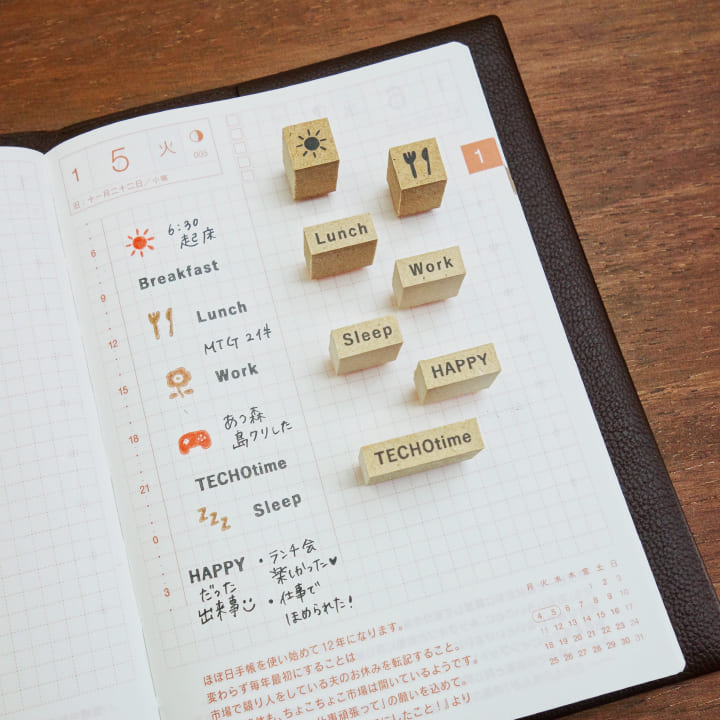 1 5 火
005
旧・十一月二十二日/小寒
1
6
6:30
起床
Breakfast
9
Lunch
12
MTG 2件
Work
15
あつ森
島クリした
18
TECHOtime
21
Sleep
0
HAPPY
だった
出来事
3
・ランチ会
楽しかった♥
・仕事で
ほめられた!
Lunch
Work
Sleep
HAPPY
TECHOtime
月 火 水 木 金 土 日
1 2 3
4 5 6 7 8 9 10
11 12 13 14 15 16 17
18 19 20 21 22 23 24
25 26 27 28 29 30 31
ほぼ日手帳を使い始めて12年になります。
変わらず毎年最初にすることは
市場で競り人をしている夫のお休みを転記すること。
も、ちょこちょこ市場は開いているようです。
頑張って」の願いを込めて。
にしたこと!」より